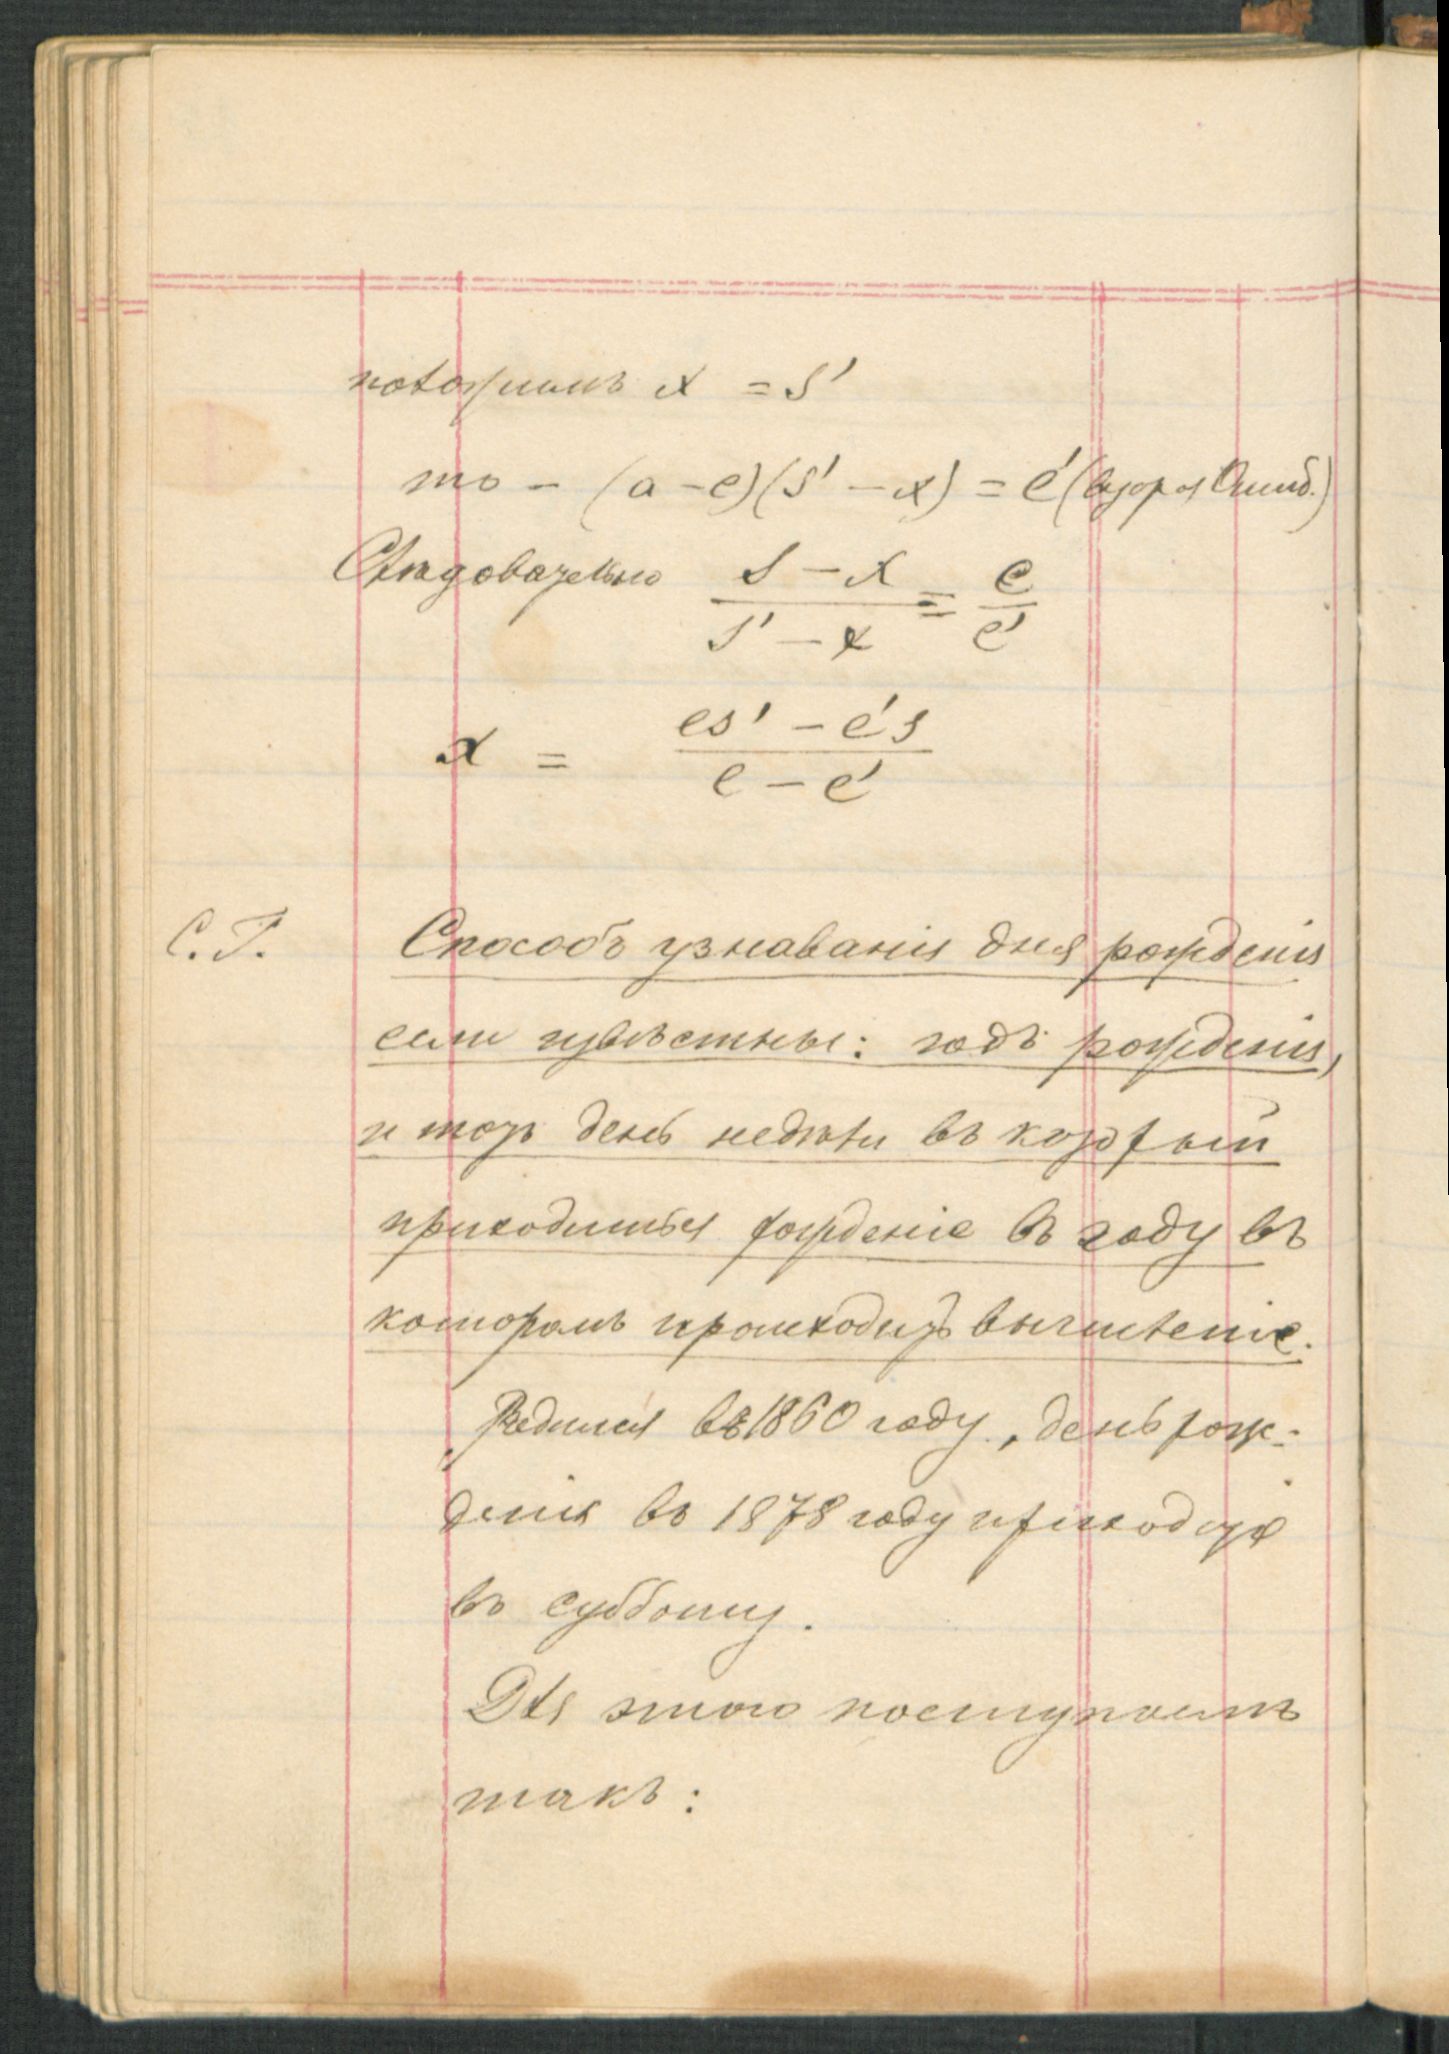 положимъ x = s'
то – (a – e)(s' – x) = e' (вторая Ошиб.)
Слѣдовательно (s – x)/(s' – x) = e/e'
x = (es' – e's)/(e – e')
С.Г. Способъ узнаванія дня рожденія
если извѣстны: годъ рожденія,
и тотъ день недѣли въ который
приходится рожденіе въ году въ
которомъ происходитъ вычисленіе.
Родился въ 1860 году, день рож-
денія въ 1878 году приходится
въ субботу.
Для этого поступаемъ
такъ: